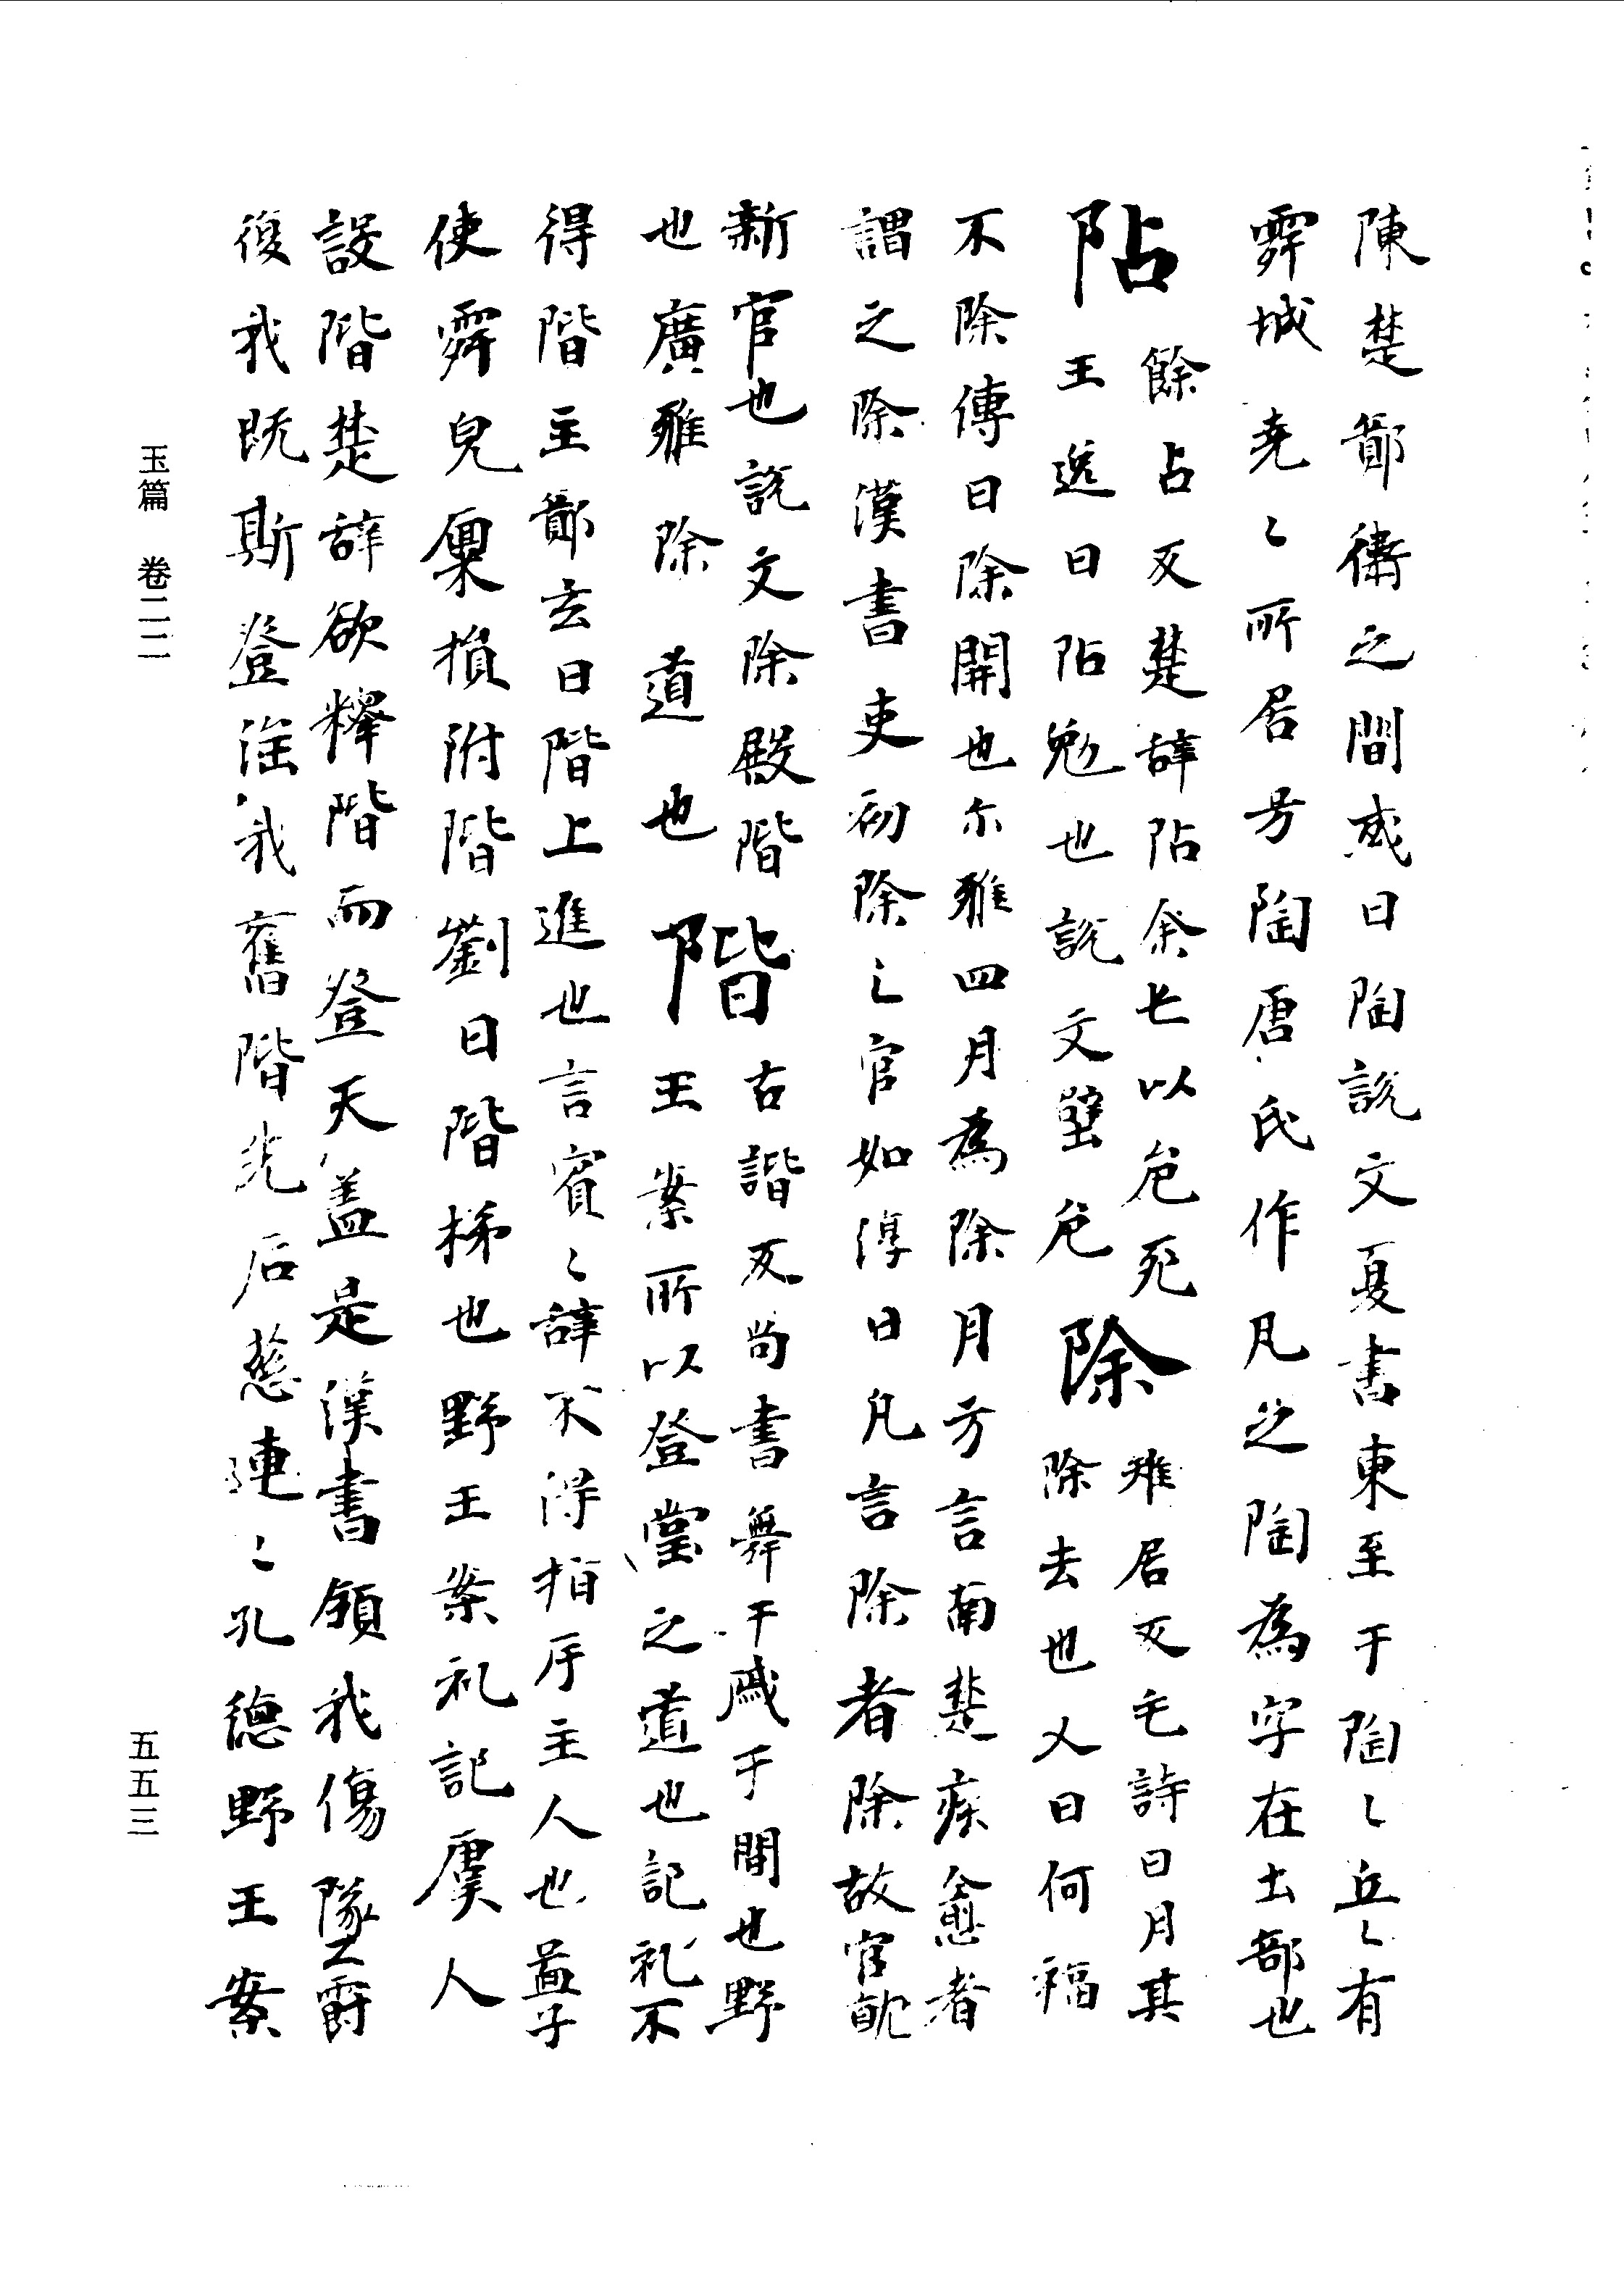 陳楚鄭衞之間或曰陶說文夏書東至于陶〻丘〻有
舜城堯〻所居号陶唐氏作凡之陶為字在土部也
阽
餘占反楚辞阽余以危死
王逸曰阽勉也說文壁危
除
雉居反毛詩日月其
除去也又曰何福
不除傳曰除開也尒雅四月為除月方言南楚疾愈者
謂之除漢書吏初除〻官如淳曰凡言除者除故官就
新官也說文除殿階
也廣雅除道也
階
古諧反尚書舞干戚于間也野
王案所以登堂之道也記礼不
得階主鄭玄曰階上進也言賓〻辞不得指斥主人也孟子
使舜皃廩損附階劉曰階梯也野王案礼記虞人
設階楚辞欲釋階而登天盖是漢書領我傷墜爵
復我既斯登注我舊階先后慈連〻孔德野王案
玉篇 卷二二
五五三